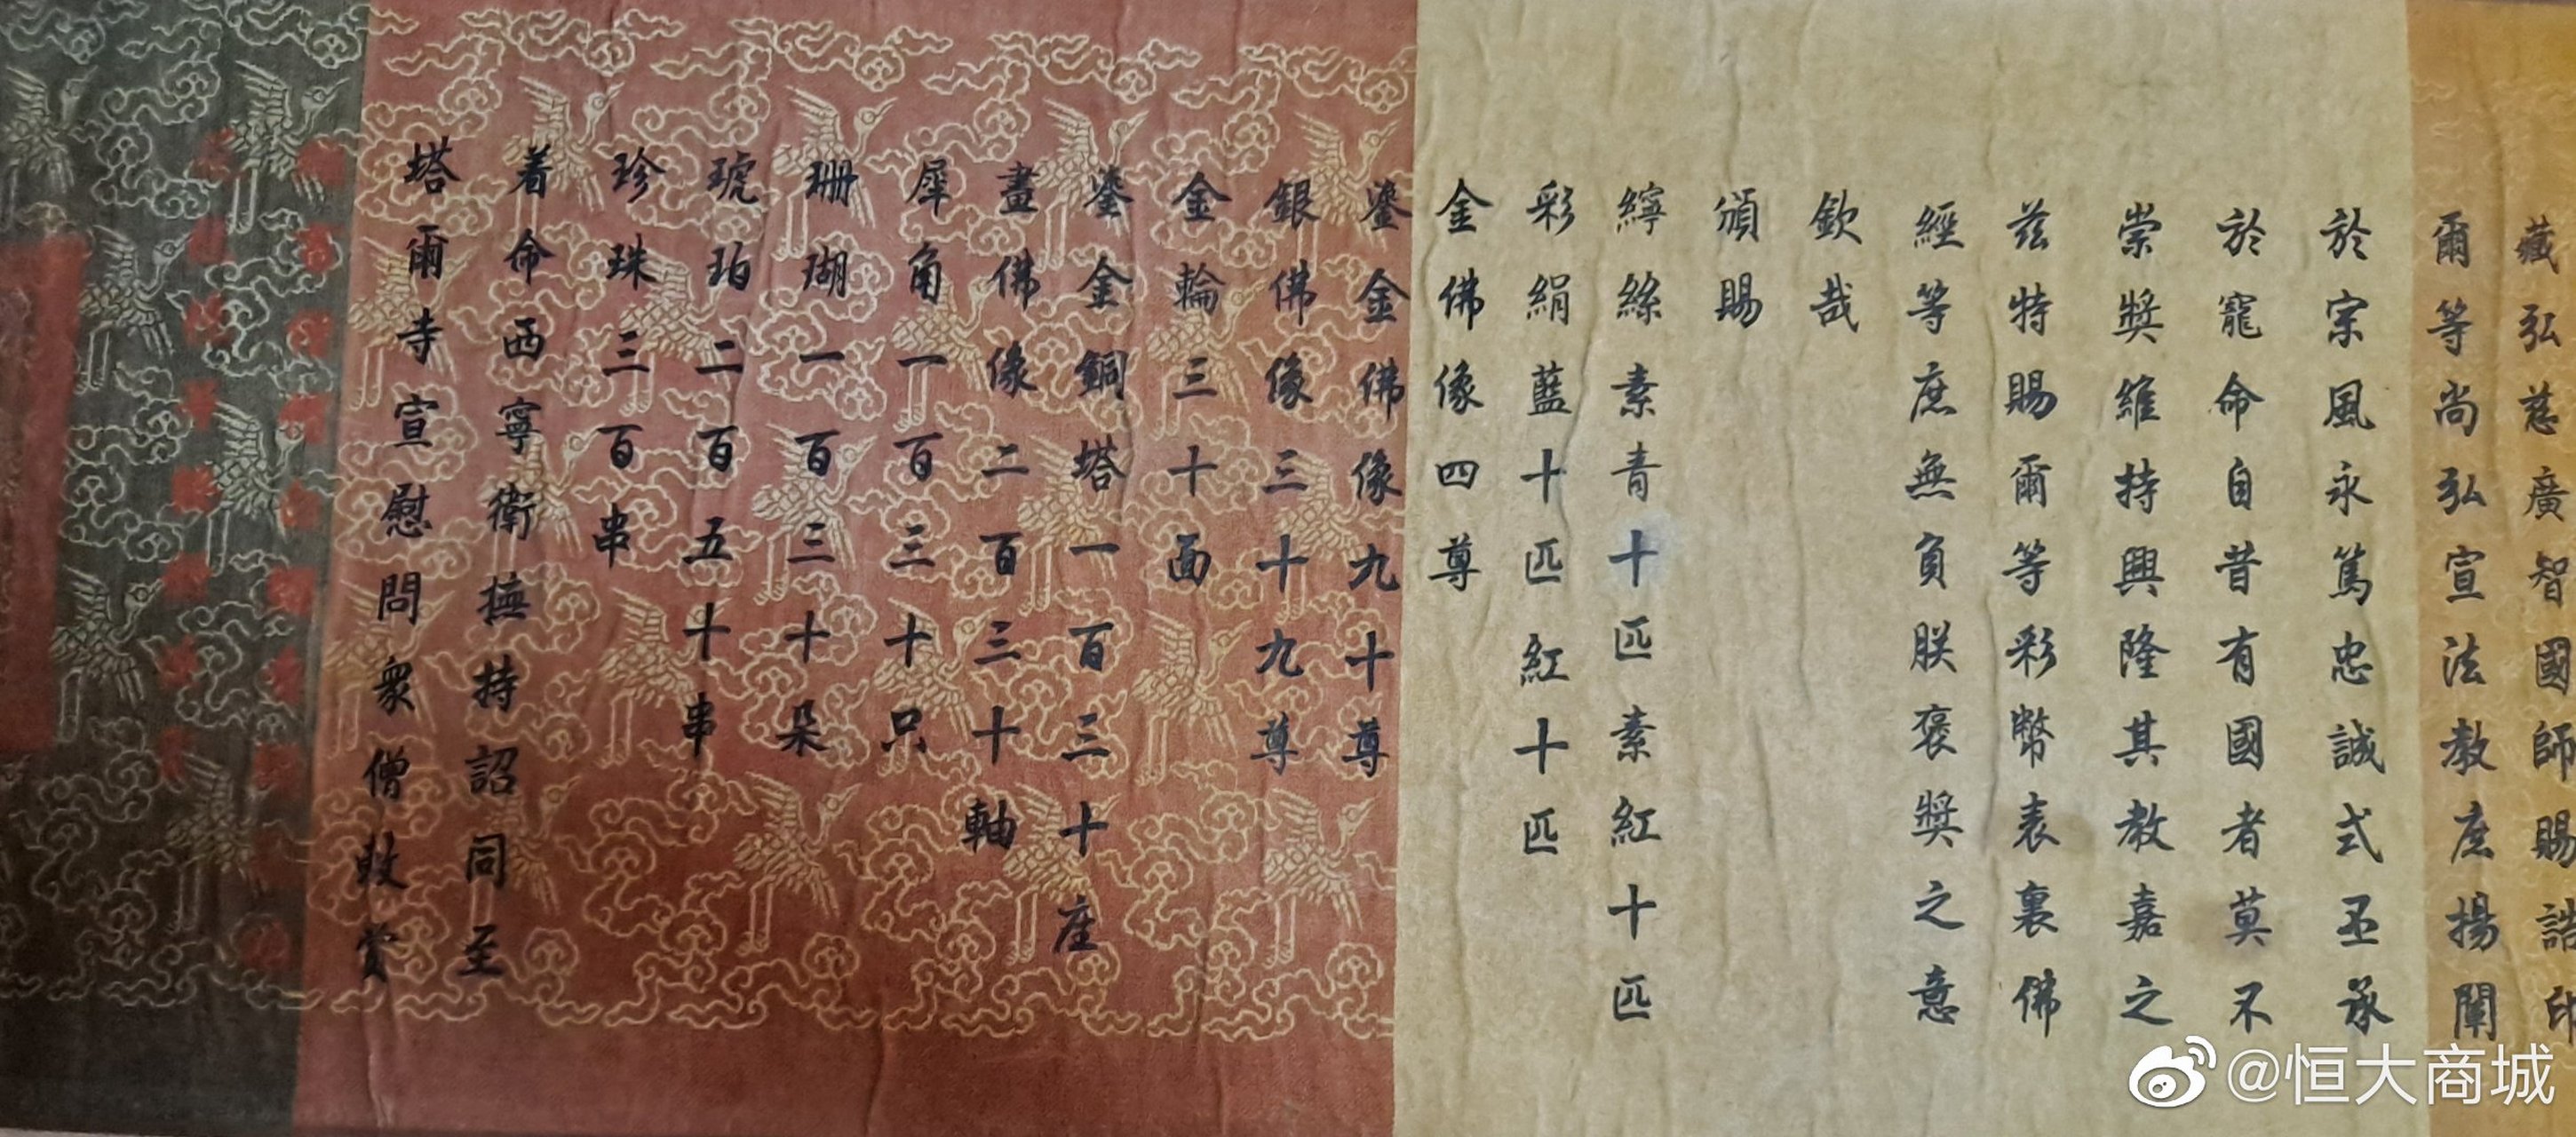 藏弘慈廣智國師賜誥印
爾等尚弘宣法教庶揚闡
於宗風永篤忠誠式丕承
於寵命自昔有國者莫不
崇獎維持興隆其教嘉之
茲特賜爾等彩幣表裏佛
經等庶無負朕褒獎之意
欽哉
頒賜
纻絲素青十匹素紅十匹
彩絹藍十匹紅十匹
金佛像四尊
鎏金佛像九十尊
銀佛像三十九尊
金輪三十面
鎏金銅塔一百三十座
畫佛像二百三十軸
犀角一百三十只
珊瑚一百三十朵
琥珀二百五十串
珍珠三百串
着命西寧衛撫持詔同至
塔爾寺宣慰問衆僧敕賞
@恒大商城